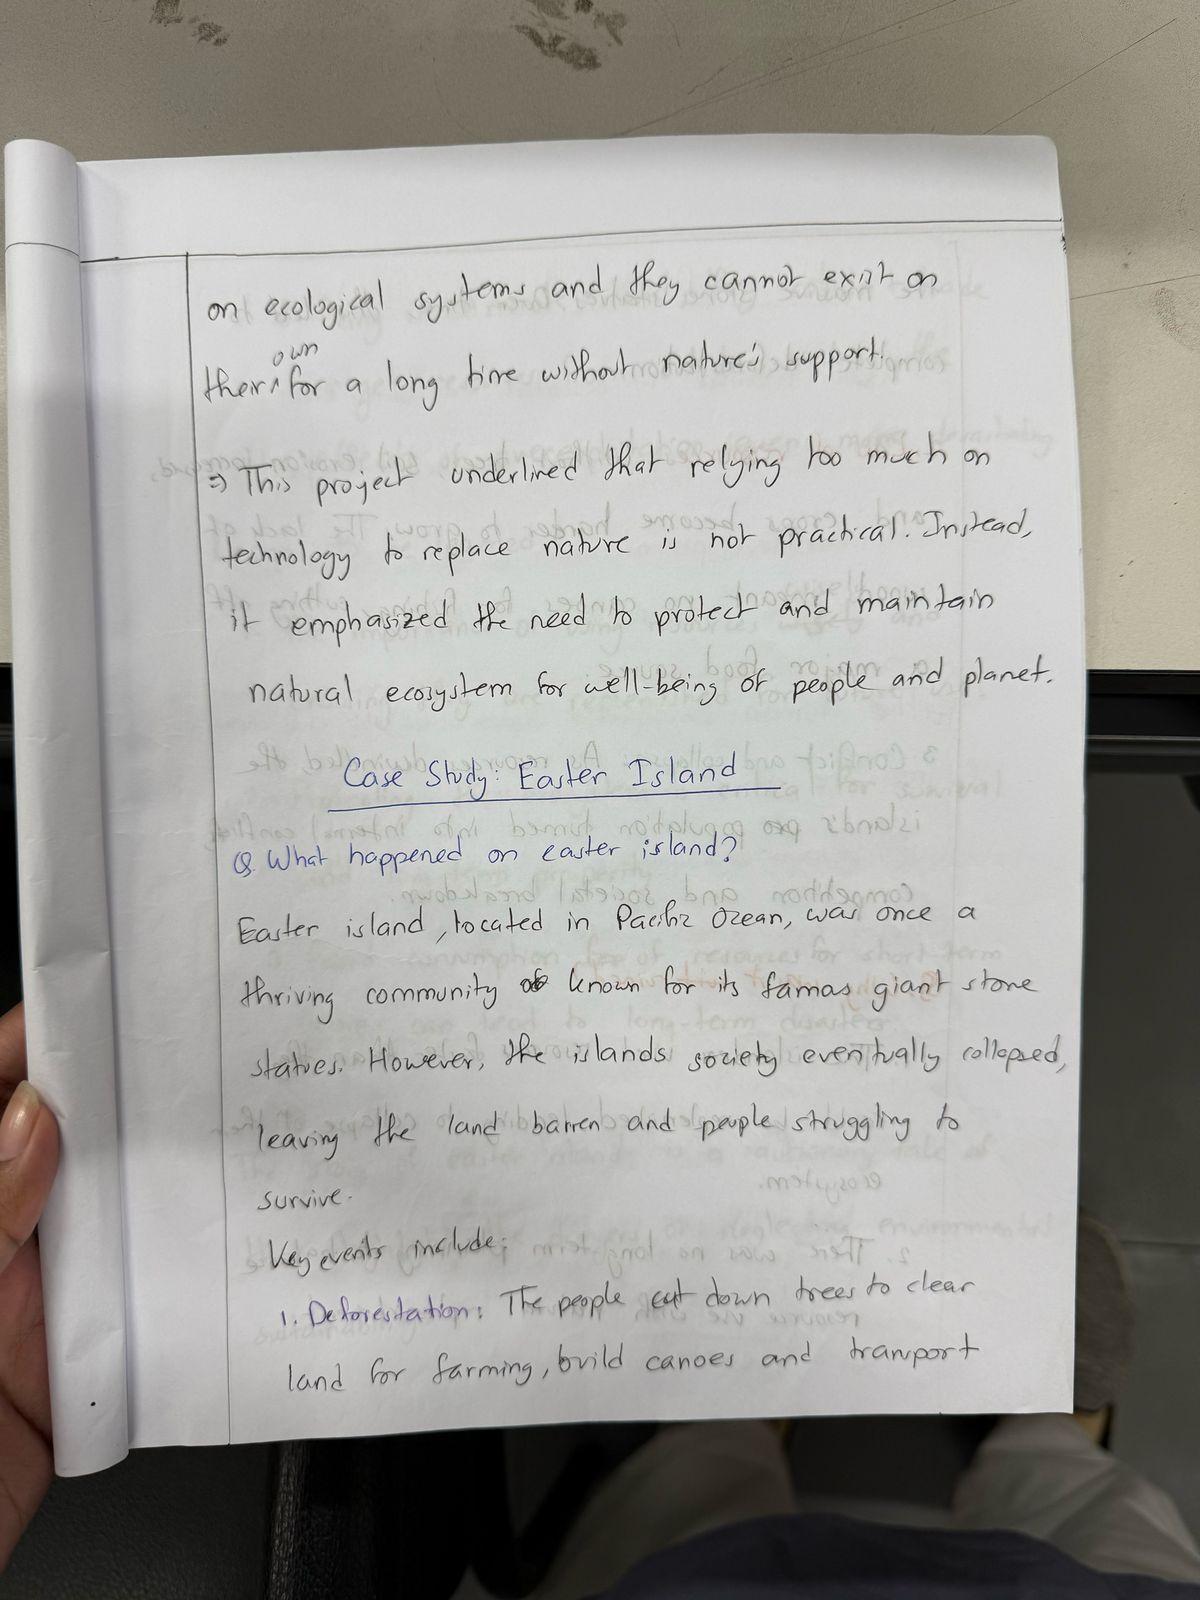 on ecological systems and they cannot exist on
their own for a long time without nature's support.
⇒ This project underlined that relying too much on
technology to replace nature is not practical. Instead,
it emphasized the need to protect and maintain
natural ecosystem for well-being of people and planet.
Case Study: Easter Island
Q. What happened on easter island?
Easter island, located in Pacific Ozean, was once a
thriving community known for its famas giant stone
statues. However, the islands society eventually collapsed,
leaving the land barren and people struggling to
survive.
Key events include:
1. Deforestation: The people cut down trees to clear
land for farming, build canoes and transport